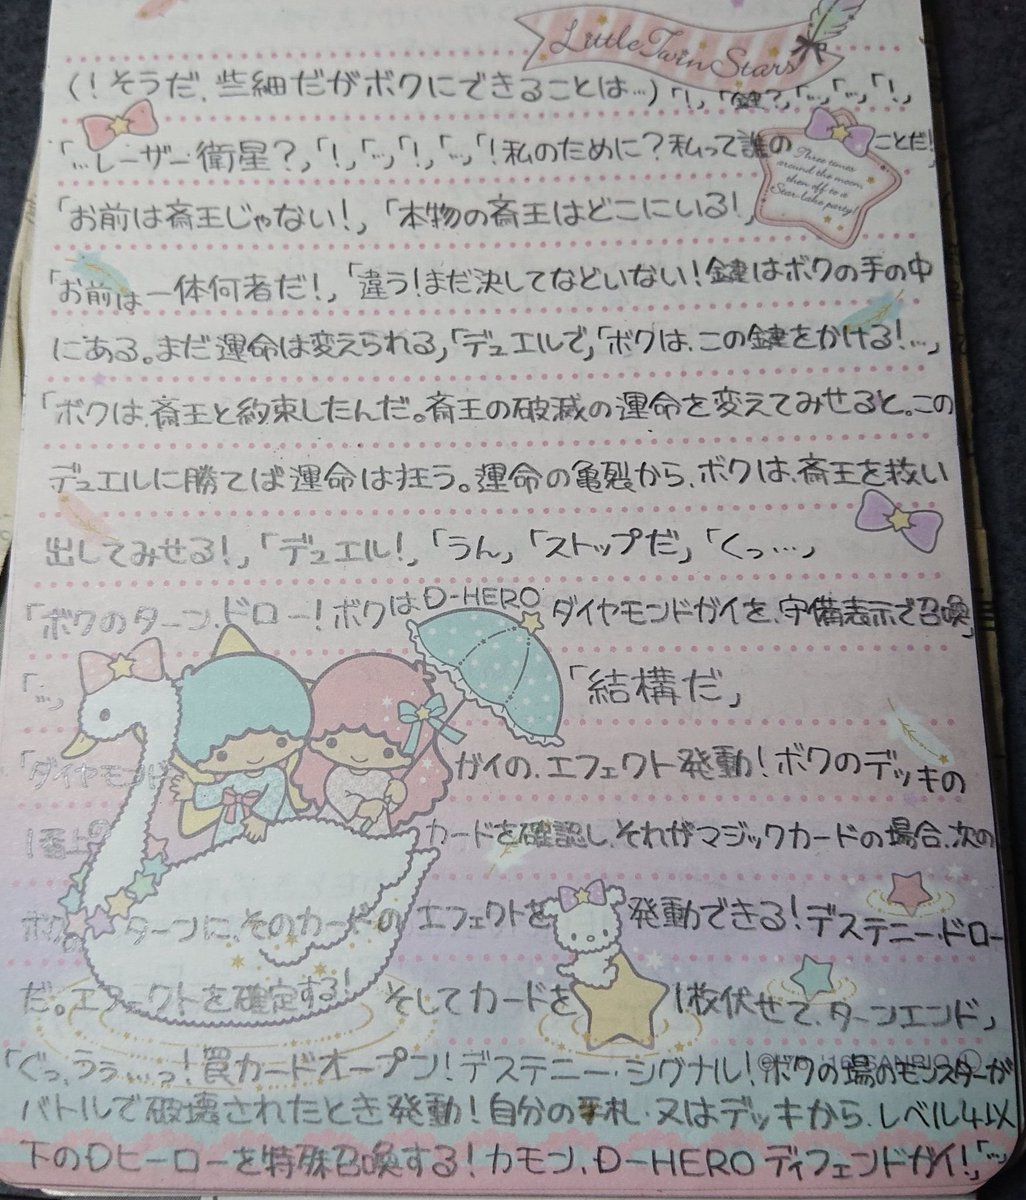 Little Twin Stars
(！そうだ、些細だがボクにできることは…)「！」「鍵？」「…」「…」「！」
「…レーザー衛星？」「！」「…」「！」「…」「！私のために？私って誰のことだ！」
Three times around the moon, then off to a Star-lake party!
「お前は斎王じゃない！」「本物の斎王はどこにいる！」
「お前は一体何者だ！」「違う！まだ決してなどいない！鍵はボクの手の中
にある。まだ運命は変えられる」「デュエルで」「ボクは、この鍵をかける！…」
「ボクは、斎王と約束したんだ。斎王の破滅の運命を変えてみせると。この
デュエルに勝てば運命は狂う。運命の亀裂から、ボクは、斎王を救い
出してみせる！」「デュエル！」「うん」「ストップだ」「くっ…」
「ボクのターン、ドロー！ボクはD-HEROダイヤモンドガイを、守備表示で召喚」
「…」「結構だ」
「ダイヤモンドガイの、エフェクト発動！ボクのデッキの
1番上のカードを確認し、それがマジックカードの場合、次の
ボクのターンに、そのカードのエフェクトを発動できる！デステニー・ドロー
だ。エフェクトを確定する！そしてカードを1枚伏せて、ターンエンド」
「ぐっ、うぅ…っ！罠カードオープン！デステニー・シグナル！ボクの場のモンスターが
バトルで破壊されたとき発動！自分の手札・又はデッキから、レベル4以
下のDヒーローを特殊召喚する！カモン、D-HEROディフェンドガイ！」「…」